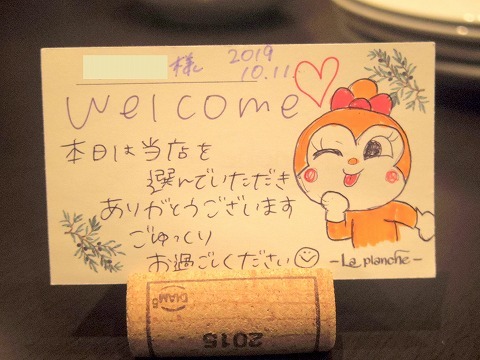 様 2019
10.11
welcome
本日は当店を
選んでいただき
ありがとうございます
ごゆっくり
お過ごしください
-La planche-
DIAM5
2015